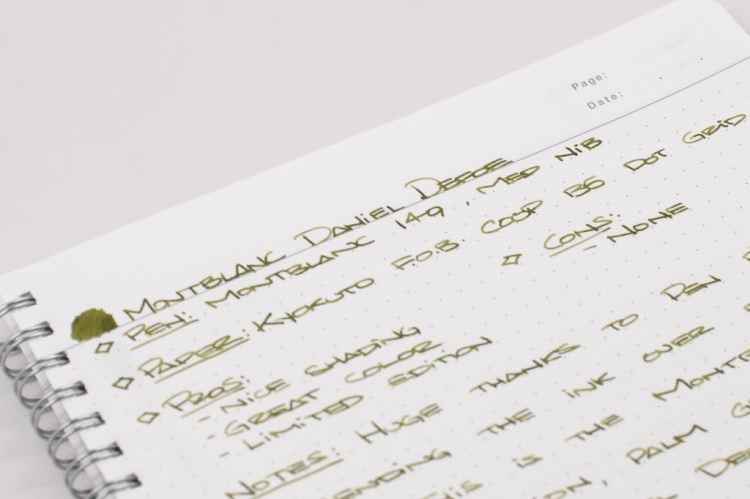 Page:
Date:
MONTBLANC DANIEL DEFOE
PEN: MONTBLANC 149, MED NIB
PAPER: KYOKUTO F.O.B. COOP B5 DOT GRID
PROS:
- NICE SHADING
- GREAT COLOR
- LIMITED EDITION
CONS:
- NONE
NOTES: HUGE THANKS TO PEN
THE INK OVER
IS THE
PALM